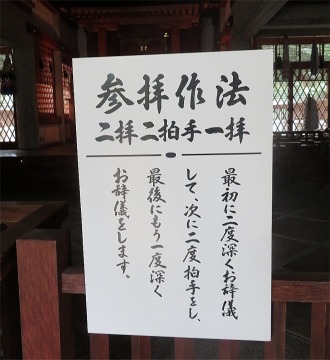 参拝作法
二拝二拍手一拝
最初に二度深くお辞儀
して、次に二度拍手をし、
最後にもう一度深く
お辞儀をします。